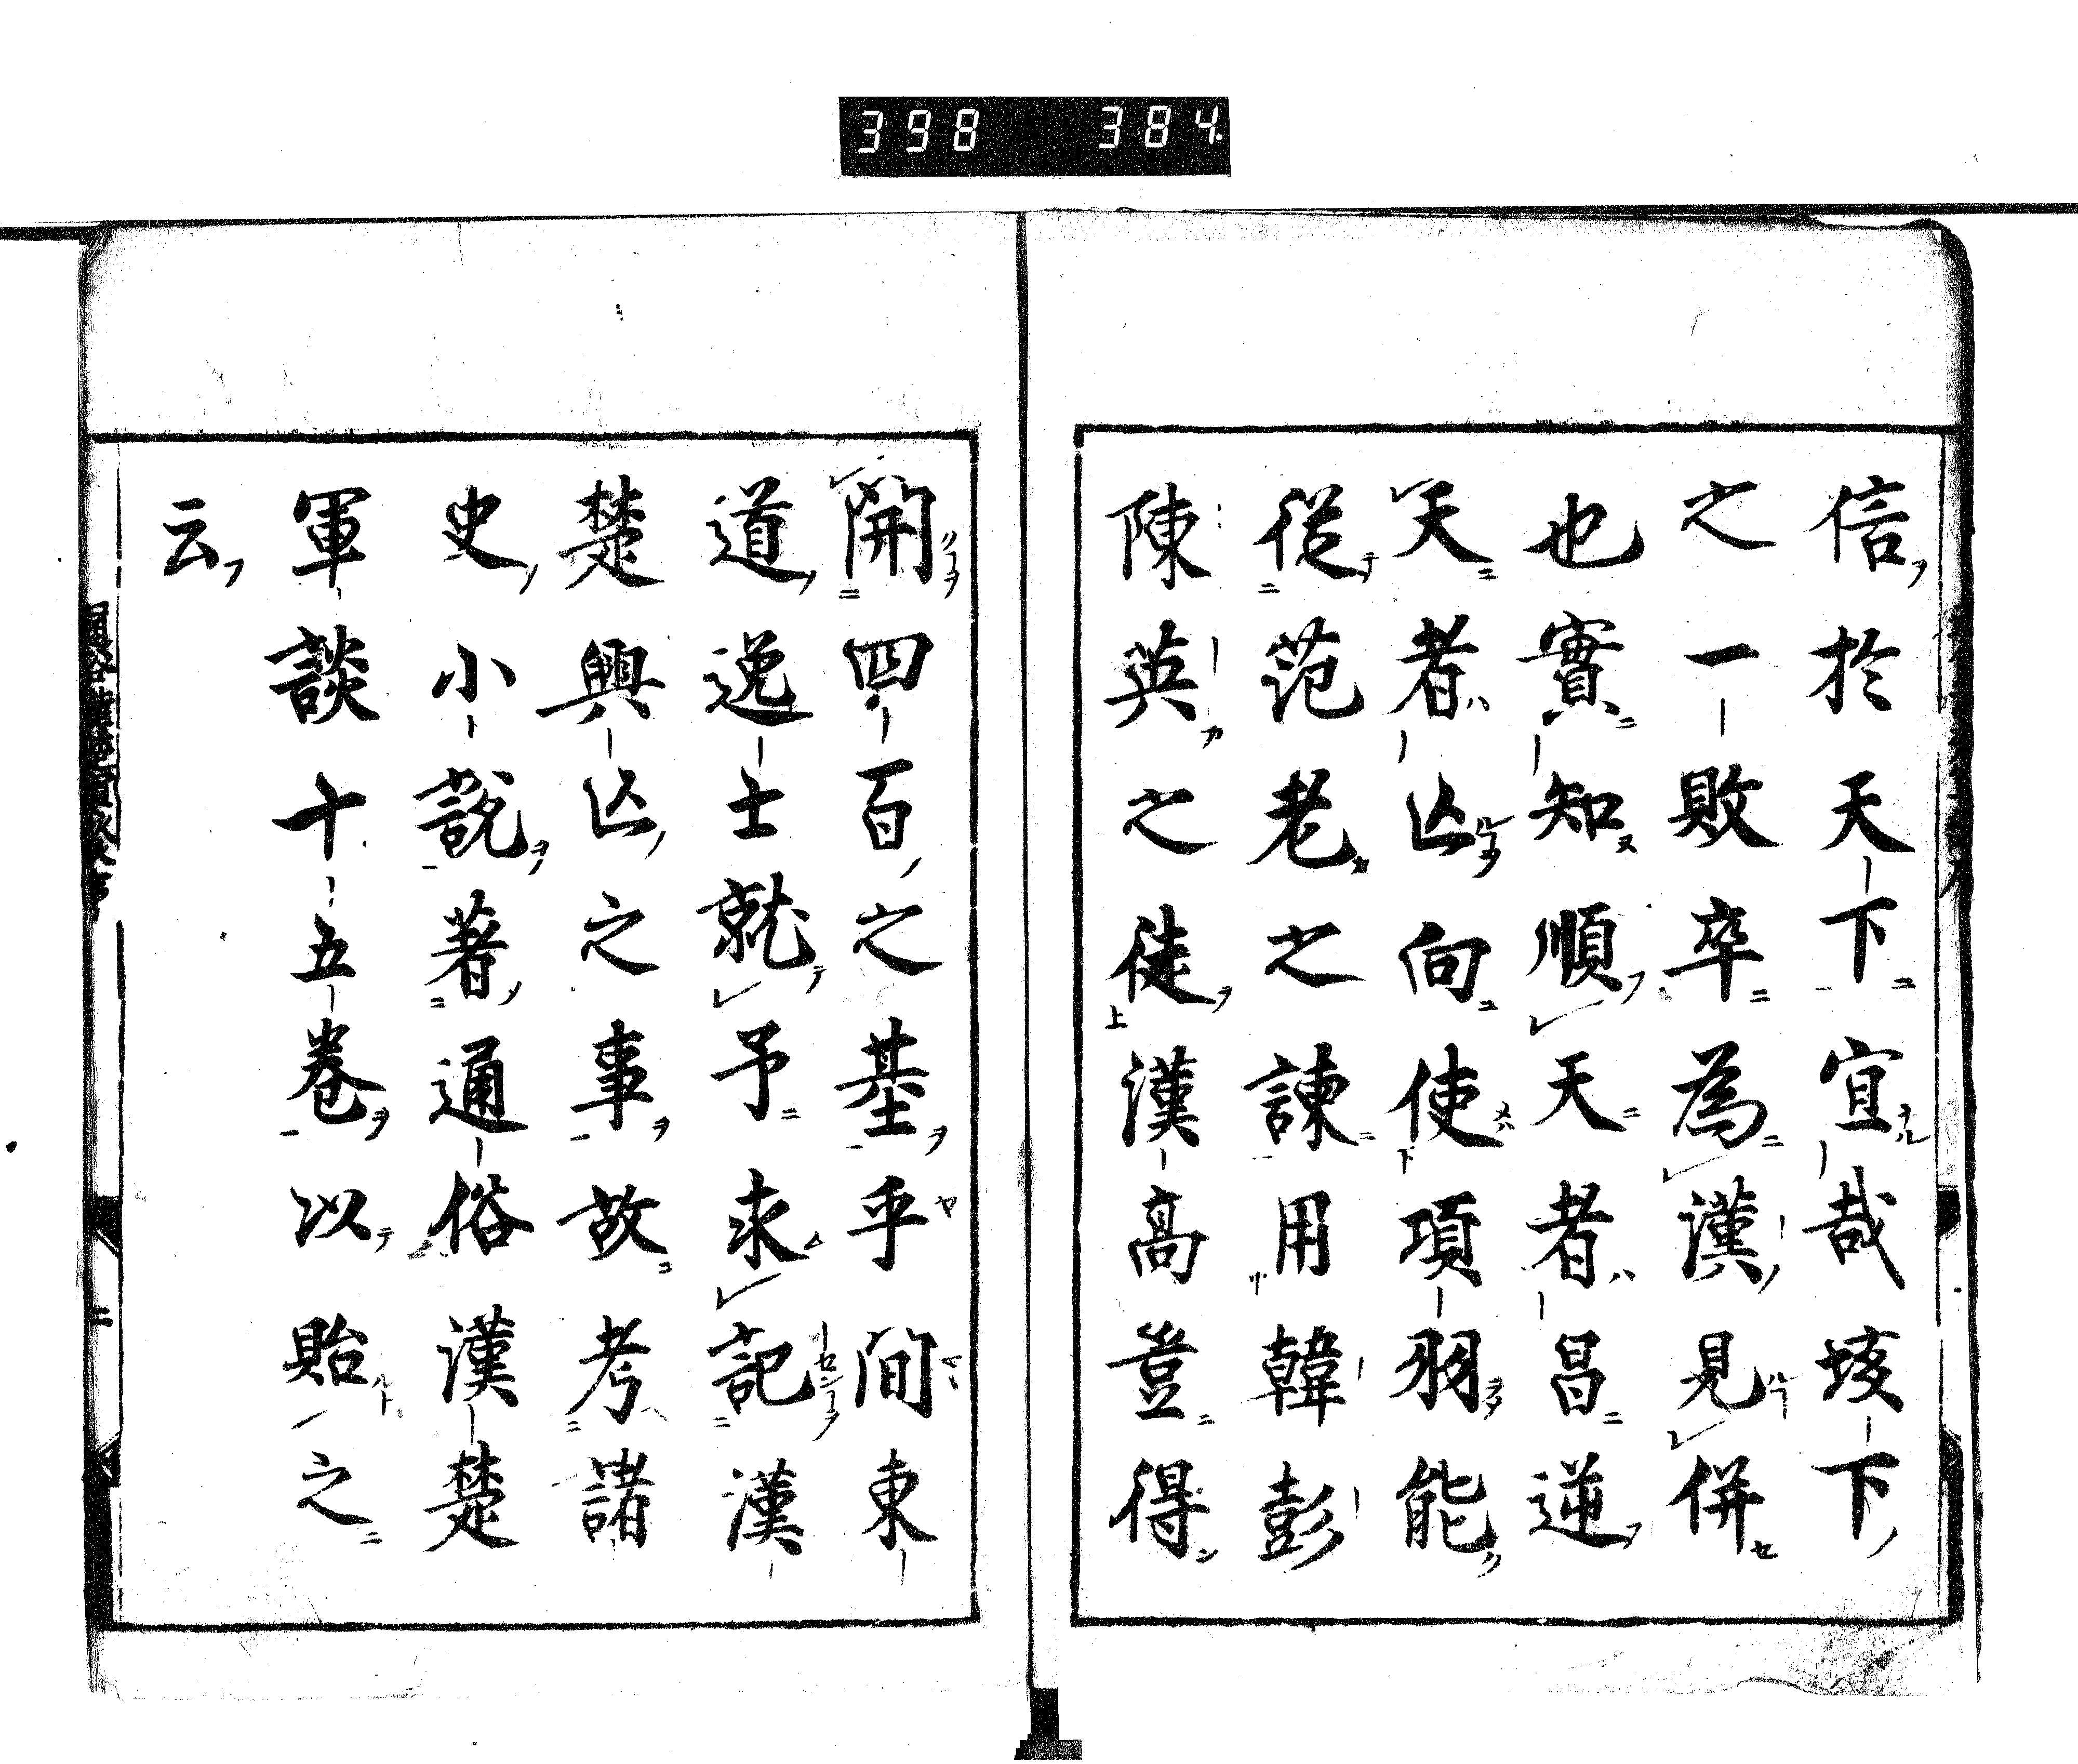 398 384
信於天下宜哉垓下
之一敗卒為漢見併
也實知順天者昌逆
天者亾向使項羽能
從范老之諫用韓彭
陳英之徒漢高豈得
開四百之基乎間東
道逸士就予求記漢
楚興亾之事故考諸
史小說著通俗漢楚
軍談十五卷以貽之
云